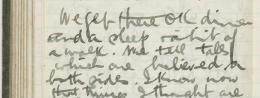 We get there OK dinner
and a sleep & a bit of
a walk. We tell tales
which are believed on
both sides. I know now
that things I thought are